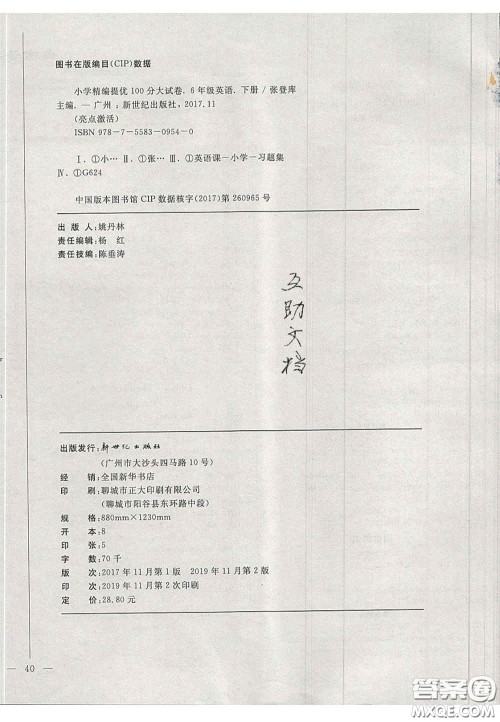 图书在版编目(CIP)数据
小学精编提优100分大试卷. 6年级英语. 下册 / 张登库
主编. — 广州 : 新世纪出版社, 2017.11
(亮点激活)
ISBN 978-7-5583-0954-0
Ⅰ. ①小… Ⅱ. ①张… Ⅲ. ①英语课—小学—习题集
Ⅳ. ①G624
中国版本图书馆CIP数据核字(2017)第260965号
出 版 人:姚丹林
责任编辑:杨 红
责任技编:陈垂涛
互助文档
出版发行:新世纪出版社
(广州市大沙头四马路10号)
经 销:全国新华书店
印 刷:聊城市正大印刷有限公司
(聊城市阳谷县东环路中段)
规 格:880mm×1230mm
开 本:8
印 张:5
字 数:70千
版 次:2017年11月第1版 2019年11月第2版
印 次:2019年11月第2次印刷
定 价:28.80元
— 40 —
答案圈
MXQE.COM